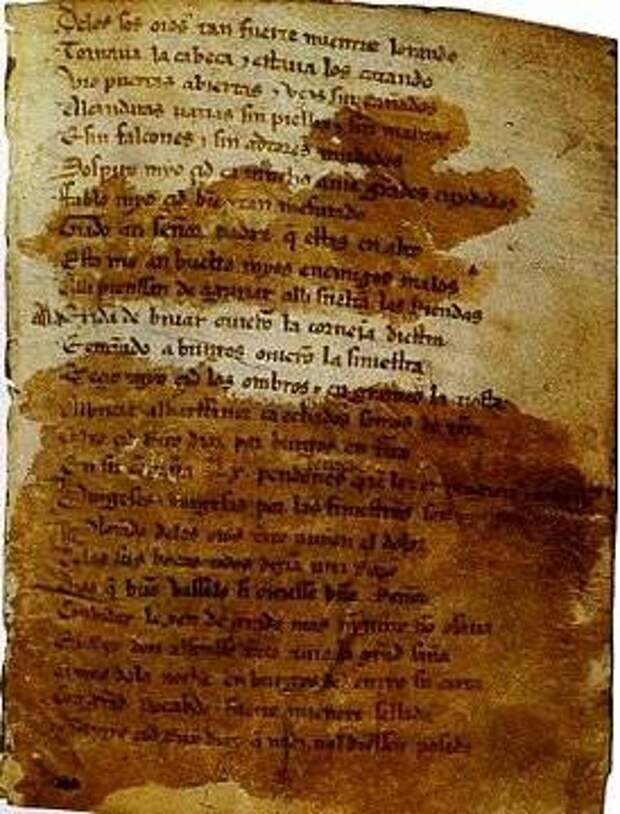 Delos sos oios tan fuerte mientre lorando
Tornaua la cabeça & estaua los catando
Vio puertas abiertas & vços sin cañados
Alcandaras uazias sin pielles & sin mantos
E sin falcones & sin adtores mudados
Sospiro myo çid ca mucho auie grandes cuydados
Fablo myo çid bien & tan mesurado
Grado a ti señor padre q estas en alto
Esto me an buelto myos enemigos malos
Alli pienssan de aguiiar alli sueltan las riendas
Ala exida de biuar ouierō la corneia diestra
E entrādo a burgos ouierō la siniestra
Meçio myo çid los ombros & engrameo la tiesta
Albricia albarffanez ca echados somos de tierra
Myo çid Ruy diaz por burgos
En su conpaña .Lx. pendones
Burgeses & burgesas por las finiestras son
Plorando delos oios tanto auien el dolor
Delas sus bocas todos dizian una Razon
Dios q buē vassalo si ouiesse buē Señor
Conbidar le yen de grado mas ninguno no osaua
El Rey don alfonsso tanto auie la grād saña
Antes dela noche en burgos del entro su carta
Con grād Recabdo & fuerte mientre sellada